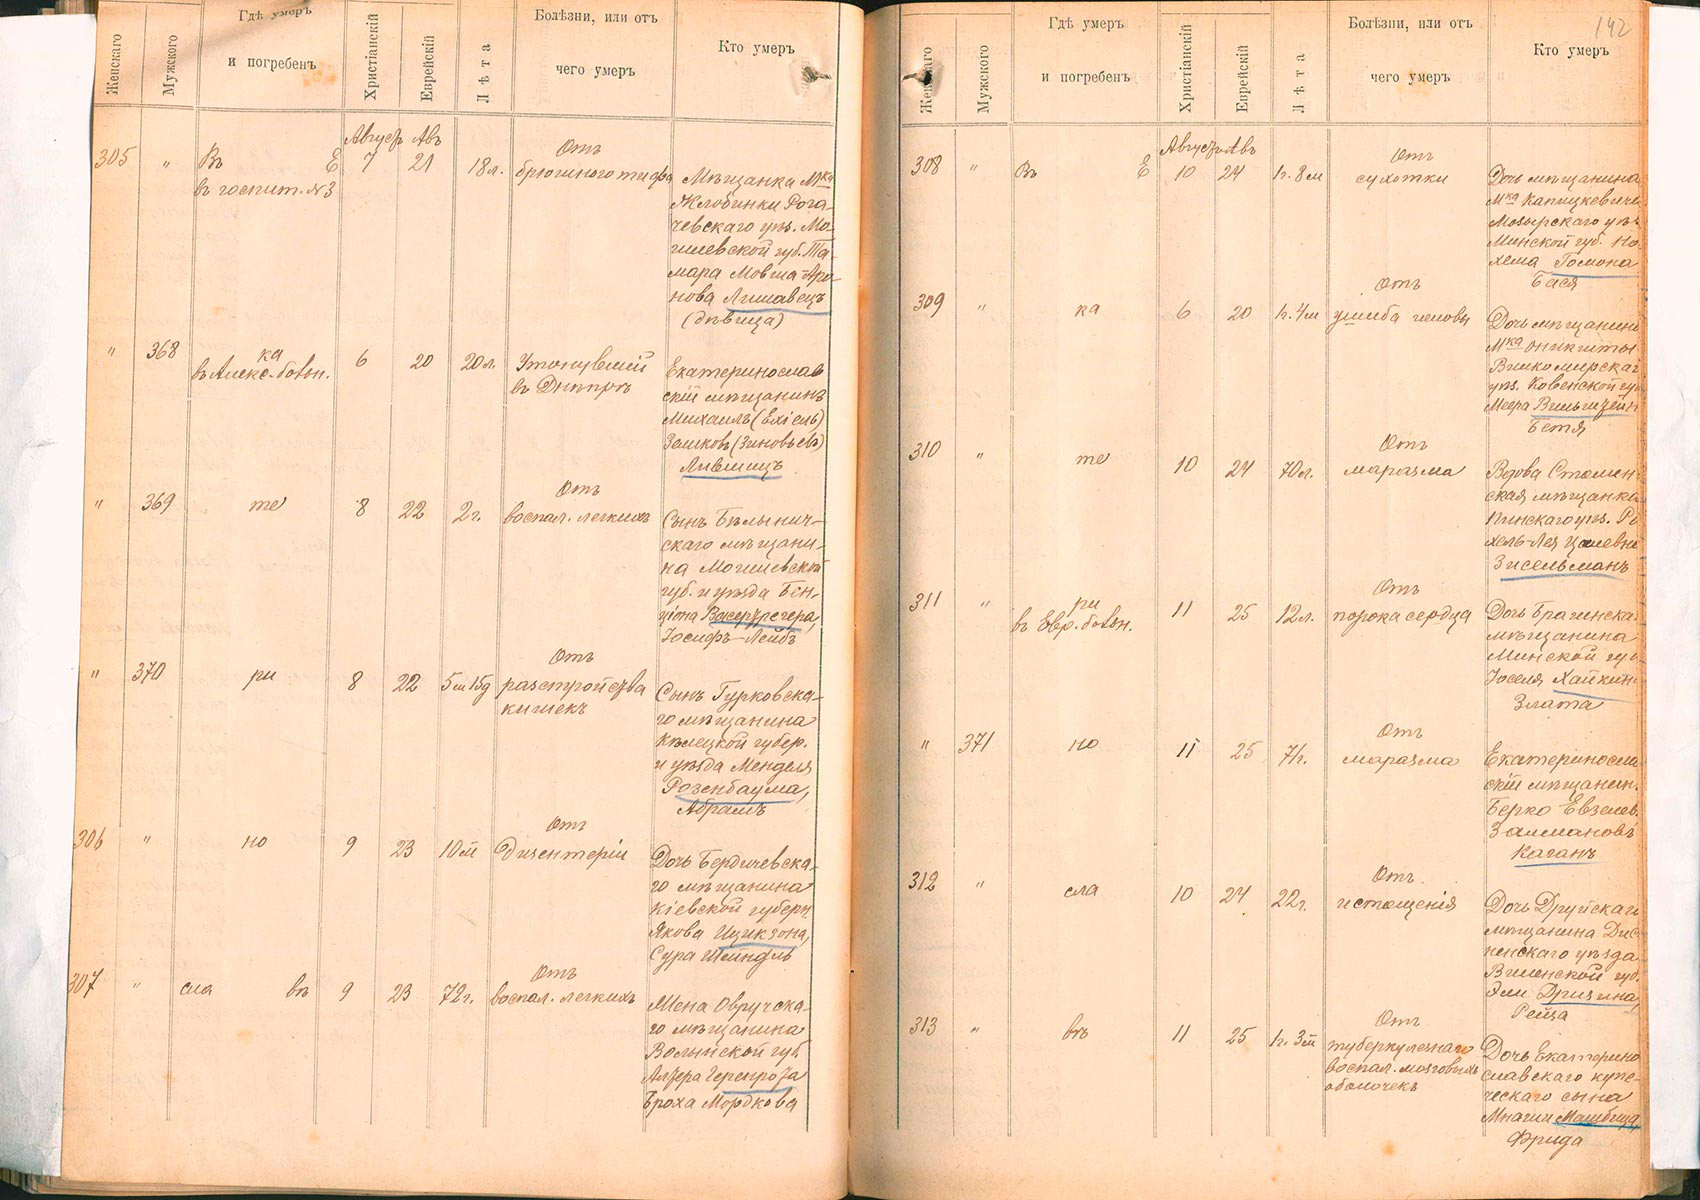 Женскаго
Мужскаго
Гдѣ умеръ
и погребенъ
Христіанскій
Еврейскій
Лѣта
Болѣзни, или отъ
чего умеръ
Кто умеръ
Август Авъ
305 „ Въ Е 7 21 18 л.
в госпит. №3
Отъ
брюшного тифа
Мѣщанка Мка
Жлобинки Рога-
чевскаго уѣз. Мо-
гилевской губ. Та-
мара Мовша-Аро-
нова Лишавецъ
(дѣвица)
„ 368 ка 6 20 20 л.
въ Алекс. больн.
Утонувшій
въ Днѣпрѣ
Екатеринослав
скій мѣщанинъ
Михаилъ (Ехіель)
Залковъ (Зиновьевъ)
Лившицъ
„ 369 те 8 22 2 г.
Отъ
воспал. легкихъ
Сынъ Бѣлынич-
скаго мѣщани-
на Могилевской
губ. и уѣзда Бен-
ціона
Іосифъ-Лейбъ
„ 370 ри 8 22 5 м 15 д
Отъ
разстройства
кишекъ
Сынъ Гурковска-
го мѣщанина
Кѣлецкой губер.
и уѣзда Менделя
Розенбаума,
Абрамъ
306 „ но 9 23 10 м
Отъ
дизентеріи
Дочь Бердичевска-
го мѣщанина
Кіевской губерн
Якова Ицикзона,
Сура Шейндль
307 „ сла въ 9 23 72 г.
Отъ
воспал. легкихъ
Жена Овручска-
го мѣщанина
Волынской губ.
Алтера
Броха Мордкова
142
Женскаго
Мужского
Гдѣ умеръ
и погребенъ
Христіанскій
Еврейскій
Лѣта
Болѣзни, или отъ
чего умеръ
Кто умеръ
Август Авъ
308 „ Въ Е 10 24 1 г. 8 м
Отъ
сухотки
Дочь мѣщанина
Мка Капицкевичи
Мозырскаго уѣз
Минской губ. Но-
хема Гомона
Бася
309 „ ка 6 20 1 г. 4 м
Отъ
ушиба головы
Дочь мѣщанина
Мка Оникшты
Вилкомирскаг
уѣз. Ковенской гу
Меера
Бетя
310 „ те 10 24 70 л.
Отъ
маразма
Вдова Столин-
ская мѣщанка
Пинскаго уѣз. Ро
хель-Лея Цалевна
Зисельманъ
311 „ ри 11 25 12 л.
в Евр. больн.
Отъ
порока сердца
Дочь Брагинска
мѣщанина
Минской губ
Іоселя Хайкин
Злата
„ 371 но 11 25 71 г.
Отъ
маразма
Екатеринослав
скій мѣщанин
Берко Евзелев.
Залмановъ
Каганъ
312 „ сла 10 24 22 г.
Отъ
истощенія
Дочь Друйскаго
мѣщанина Дис-
ненскаго уѣзда
Виленской губ.
Эли Дризина,
Рейза
313 „ въ 11 25 1 г. 3 м
Отъ
туберкулезнаго
воспал. мозговыхъ
оболочекъ
Дочь Екатерино
славскаго купе-
ческаго сына
Фрида